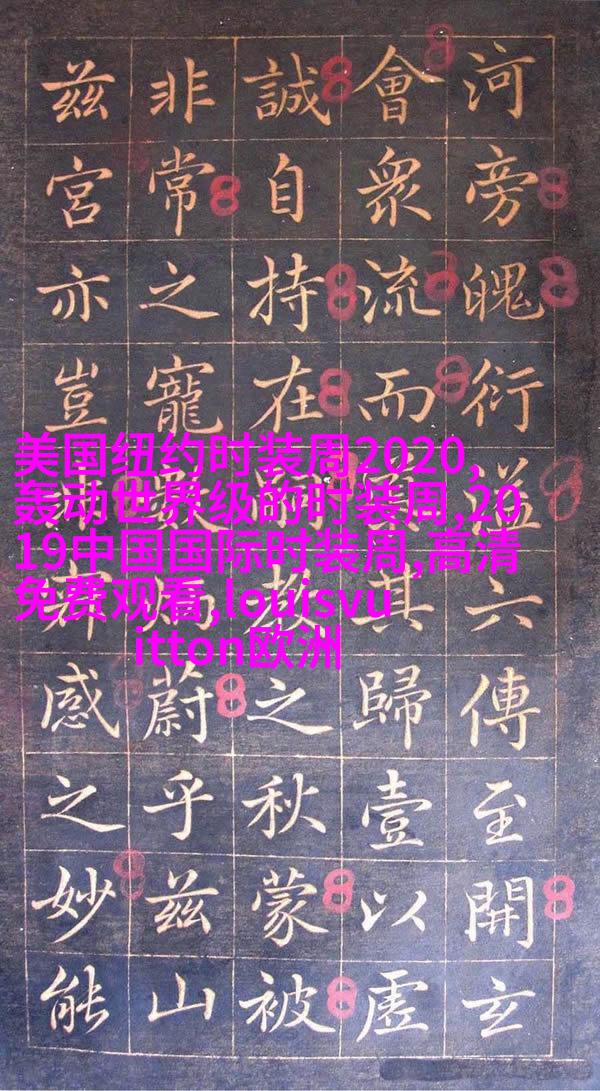 河旁魄衍溢六傳至開玄
會衆流而其歸壹以虛
誠自持在之秋蒙被
非常之寵蔚乎茲山
茲宮亦豈感之妙能
美国纽约时装周2020,
轰动世界级的时装周,20
19中国国际时装周,高清
免费观看,louisvu
itton欧洲